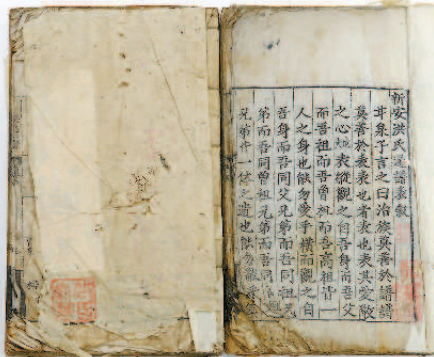 新安洪氏通譜表敘
井泉子言之曰治族莫善於譜譜
莫善於表表也者表也表其愛敬
之心也表縱觀之自吾身而吾父
而吾祖而吾曾祖而吾高祖皆一
人之身也能勿愛乎橫而觀之自
吾身而吾同父兄弟而吾同祖兄
弟而吾同曾祖兄弟而吾同
兄弟皆一體之遺也能勿敬乎